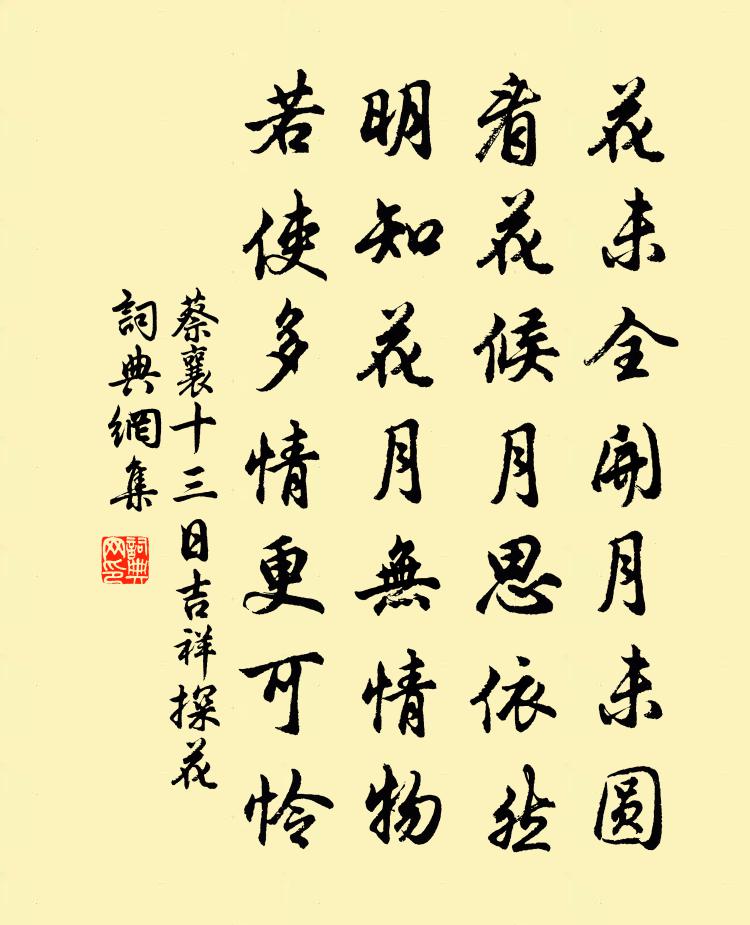 花未全開月未圓
看花候月思依然
明知花月無情物
若使多情更可怜
蔡襄十三日吉祥探花
詞典網集
詞典网印